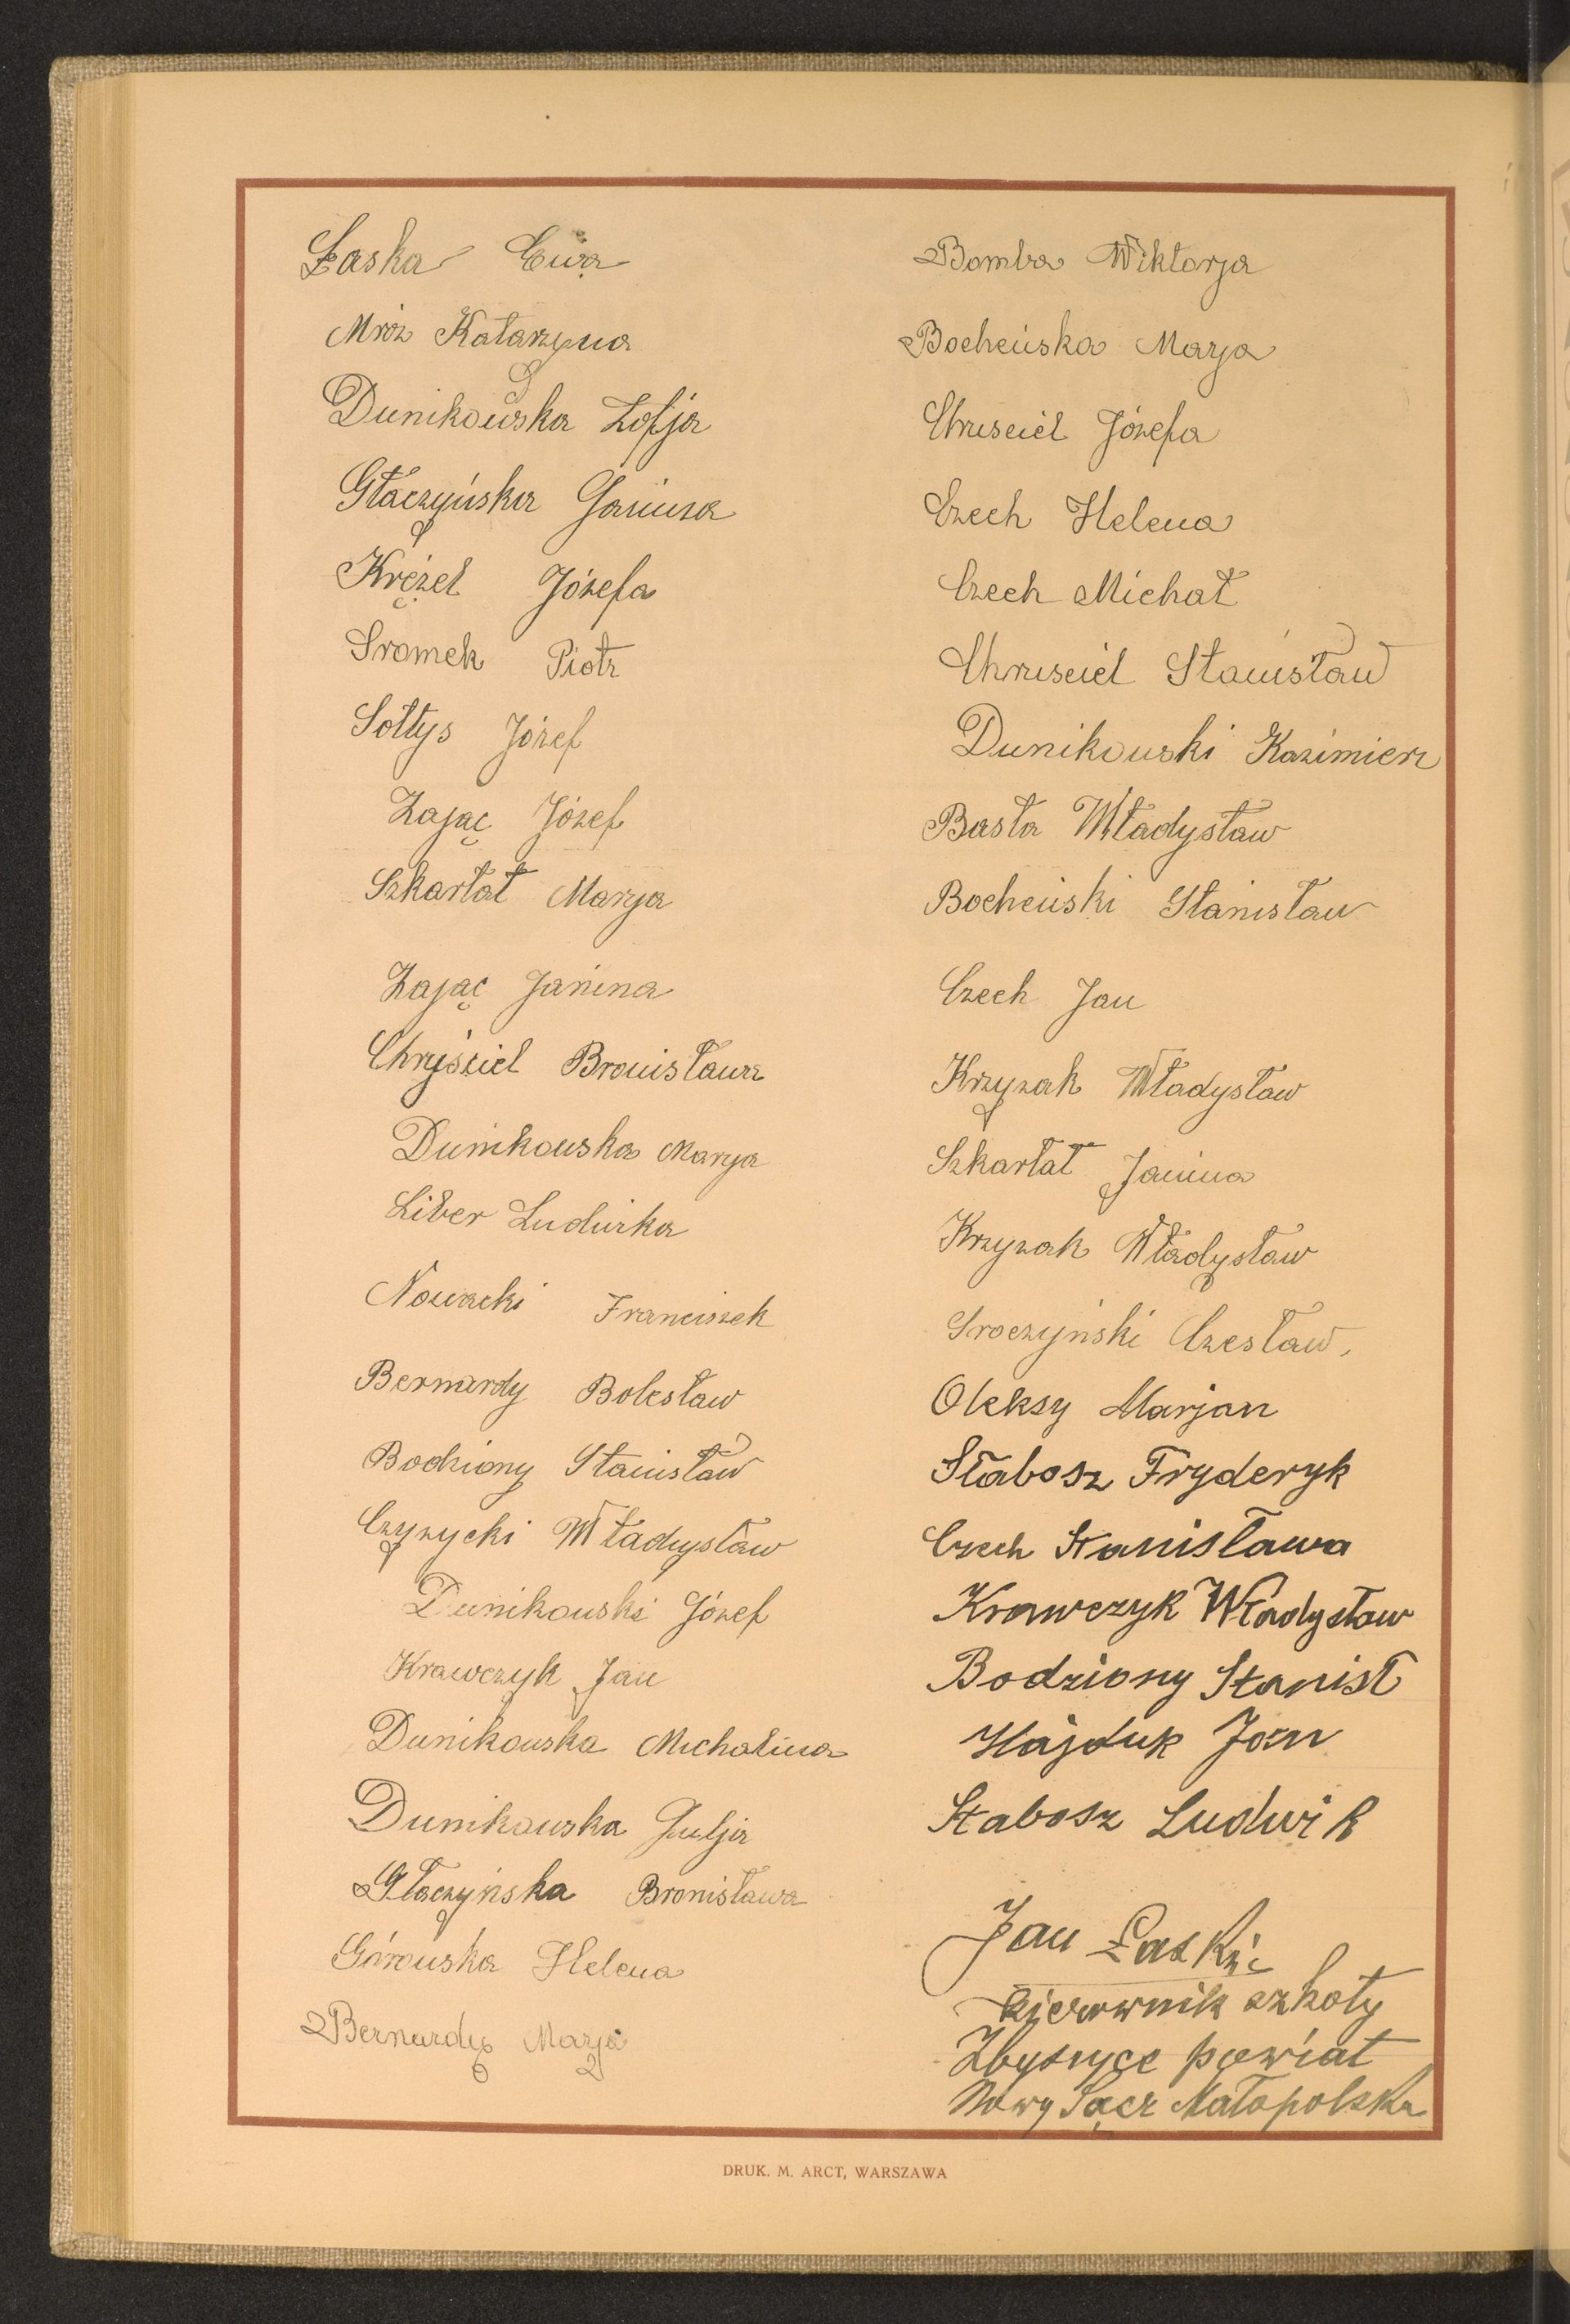 Łaska Ewa
Mróz Katarzyna
Dunikowska Zofja
Głaczyńska Janina
Krężel Józefa
Sromek Piotr
Sołtys Józef
Zając Józef
Szkarłat Marja
Zając Janina
Chryściel Bronisława
Dunikowska Marya
Liber Ludwika
Nowacki Franciszek
Bernardy Bolesław
Bodziony Stanisław
Czyzycki Władysław
Dunikowski Józef
Krawczyk Jan
Dunikowska Michalina
Dunikowska Julja
Głaczyńska Bronisława
Górowska Helena
Bernardy Marja
Bomba Wiktorja
Bocheńska Marja
Chruściel Józefa
Czech Helena
Czech Michał
Chruściel Stanisław
Dunikowski Kazimierz
Basta Władysław
Bocheński Stanisław
Czech Jan
Krzyzak Władysław
Szkarłat Janina
Krzyzak Władysław
Sroczyński Czesław,
Oleksy Marjan
Słabosz Fryderyk
Czech Stanisława
Krawczyk Władysław
Bodziony Stanisł
Hajduk Jan
Słabosz Ludwik
Jan Łaski
kierownik szkoły
Zbyszyce powiat
Nowy Sącz Małopolska
DRUK. M. ARCT, WARSZAWA